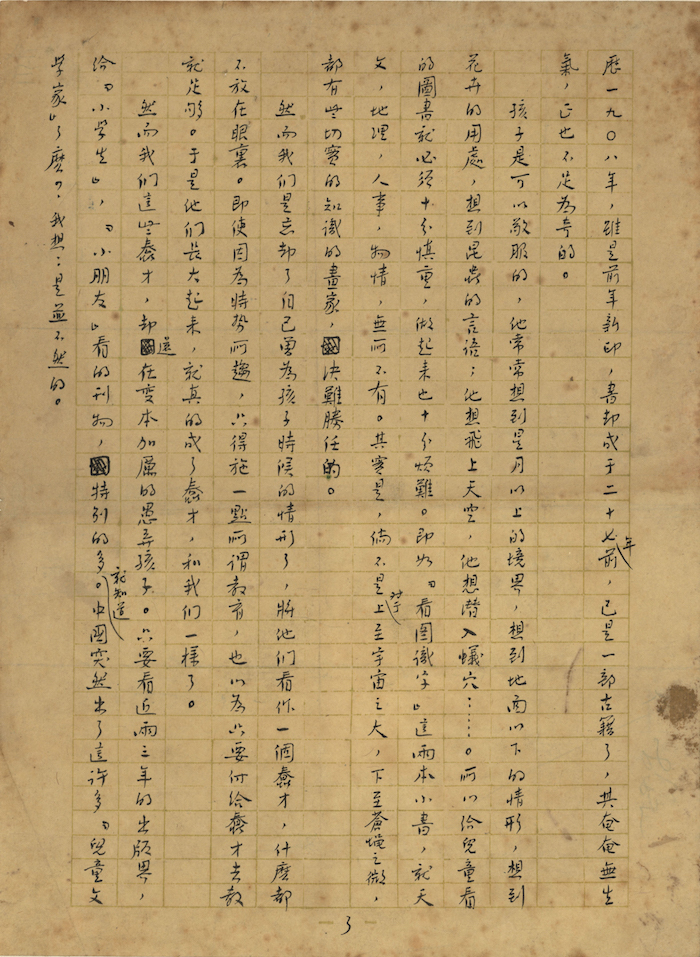 歷一九〇八年，雖是前年新印，書却成于二十七年前，已是一部古籍了，其奄奄無生
氣，正也不足為奇的。
孩子是可以敬服的，他常常想到星月以上的境界，想到地面以下的情形，想到
花卉的用處，想到昆蟲的言語；他想飛上天空，他想潛入蟻穴……。所以給兒童看
的圖書就必須十分慎重，做起來也十分煩難。即如「看圖識字」這兩本小書，就天
文，地理，人事，物情，無所不有。其實是，倘不是對于上至宇宙之大，下至蒼蠅之微，
都有些切實的知識的畫家，決難勝任的。
然而我們是忘却了自己曾為孩子時候的情形了，將他們看作一個蠢才，什麼都
不放在眼裏。即使因為時勢所趨，只得施一點所謂教育，也以為只要付給蠢才去教
就足夠。于是他們長大起來，就真的成了蠢才，和我們一樣了。
然而我們這些蠢才，却還在變本加厲的愚弄孩子。只要看近兩三年的出版界，
給「小學生」，「小朋友」看的刊物，特別的多就知道。中國突然出了這許多「兒童文
學家」了麼？我想：是並不然的。
— 3 —